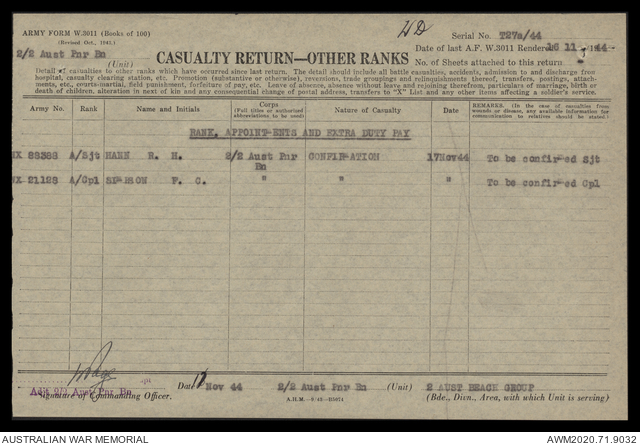 ARMY FORM W.3011 (Books of 100)
(Revised Oct., 1942.)
WD
Serial No. T27a/44
2/2 Aust Pnr Bn
(Unit)
CASUALTY RETURN—OTHER RANKS
Date of last A.F. W.3011 Rendered 16 11 44
No. of Sheets attached to this return -
Detail of casualties to other ranks which have occurred since last return. The detail should include all battle casualties, accidents, admission to and discharge from
hospital, casualty clearing station, etc. Promotion (substantive or otherwise), reversions, trade groupings and relinquishments thereof, transfers, postings, attach-
ments, etc., courts-martial, field punishment, forfeiture of pay, etc. Leave of absence, absence without leave and rejoining therefrom, particulars of marriage, birth or
death of children, alteration in next of kin and any consequential change of postal address, transfers to "X" List and any other items affecting a soldier's service.
Army No. Rank Name and Initials Corps (Full title or authorized abbreviations to be used) Nature of Casualty Date REMARKS. (In the case of casualties from wounds or disease, any available information for communication to relatives should be stated.)
RANK, APPOINTMENTS AND EXTRA DUTY PAY
A/Sjt R. H. 2/2 Aust Pnr Bn CONFIRMATION 17Nov44 To be confirmed Sjt
21128 A/Cpl SIMPSON F. C. " " " To be confirmed Cpl
Adjt 2/2 Aust Pnr Bn
Signature of Commanding Officer.
Date 17 Nov 44 2/2 Aust Pnr Bn (Unit) 2 AUST BEACH GROUP
(Bde., Divn., Area, with which Unit is serving)
AUSTRALIAN WAR MEMORIAL
AWM2020.71.9032